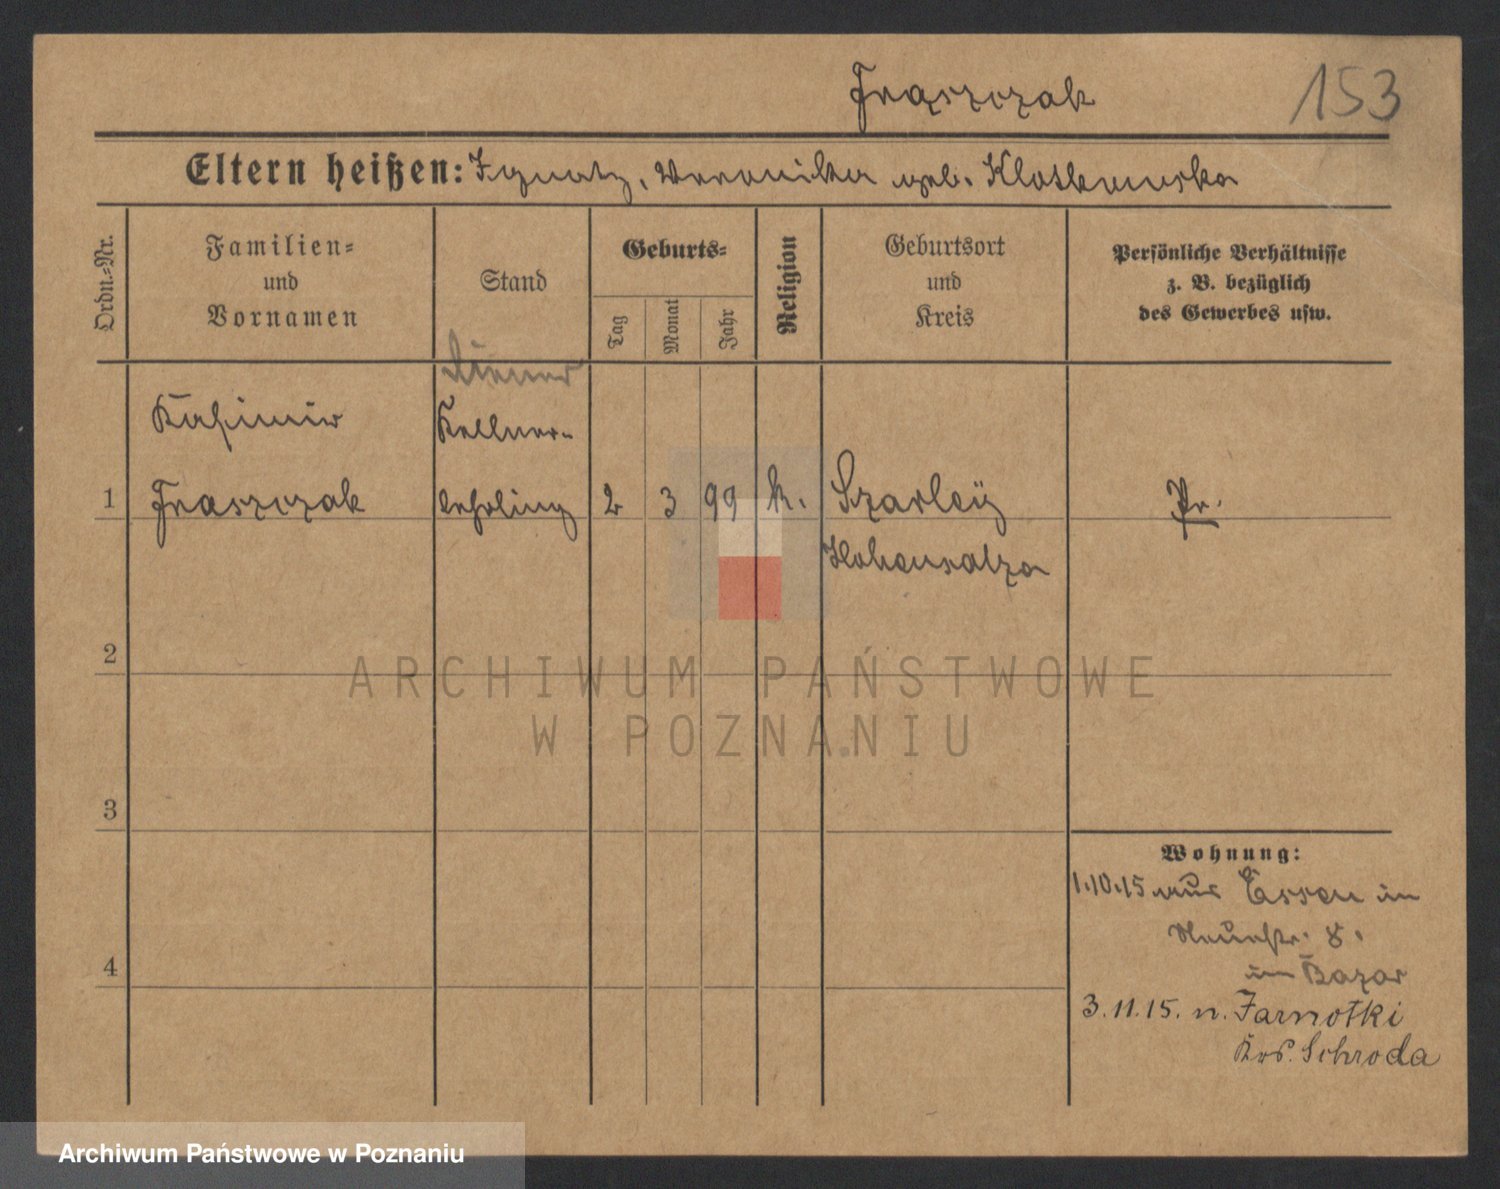 Fraszczak 153
Eltern heißen: Ignatz, Veronika geb. Klotkowska
Ordn.=Nr.
Familien=
und
Vornamen
Stand
Geburts=
Tag
Monat
Jahr
Religion
Geburtsort
und
Kreis
Persönliche Verhältnisse
z. B. bezüglich
des Gewerbes usw.
Diener
Kasimir Kellner-
1 Fraszczak lehrling 2 3 99 k. Szarley Pr.
Hohensalza
2
ARCHIWUM PAŃSTWOWE
W POZNANIU
3
Wohnung:
1.10.15 aus Essen in
Neuestr. 8.
4
im Bazar
3.11.15. n. Jarnotki
Krs. Schroda
Archiwum Państwowe w Poznaniu